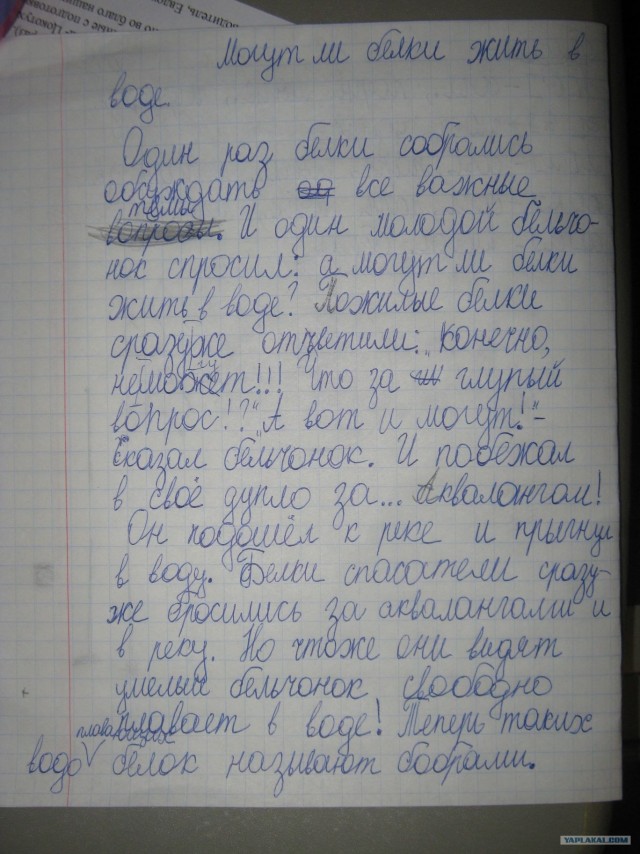 водитель, Ендов
но во благо нашего
Могут ли белки жить в
воде.
Один раз белки собрались
обсуждать од все важные
темы
вопросы. И один молодой бельчо-
нос спросил: а могут ли белки
жить в воде? Пожилые белки
сразу же ответили: „Конечно,
не могут!!! Что за глупый
вопрос!?" „А вот и могут!"-
сказал бельчонок. И побежал
в своё дупло за... Аквалангом!
Он подошёл к реке и прыгнул
в воду. Белки спасатели сразу-
же бросились за аквалангами и
в реку. Но чтоже они видят
умелый бельчонок свободно
плавает в воде! Теперь таких
водоплавающих
белок называют бобрами.
YAPLAKAL.COM